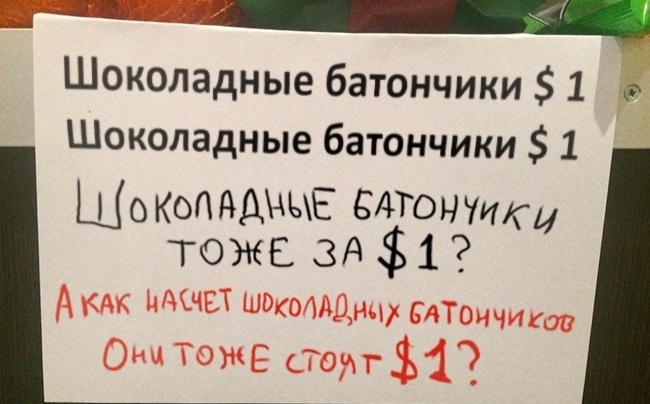 Шоколадные батончики $ 1
Шоколадные батончики $ 1
ШОКОЛАДНЫЕ БАТОНЧИКИ
ТОЖЕ ЗА $1?
А КАК НАСЧЕТ ШОКОЛАДНЫХ БАТОНЧИКОВ
ОНИ ТОЖЕ СТОЯТ $1?